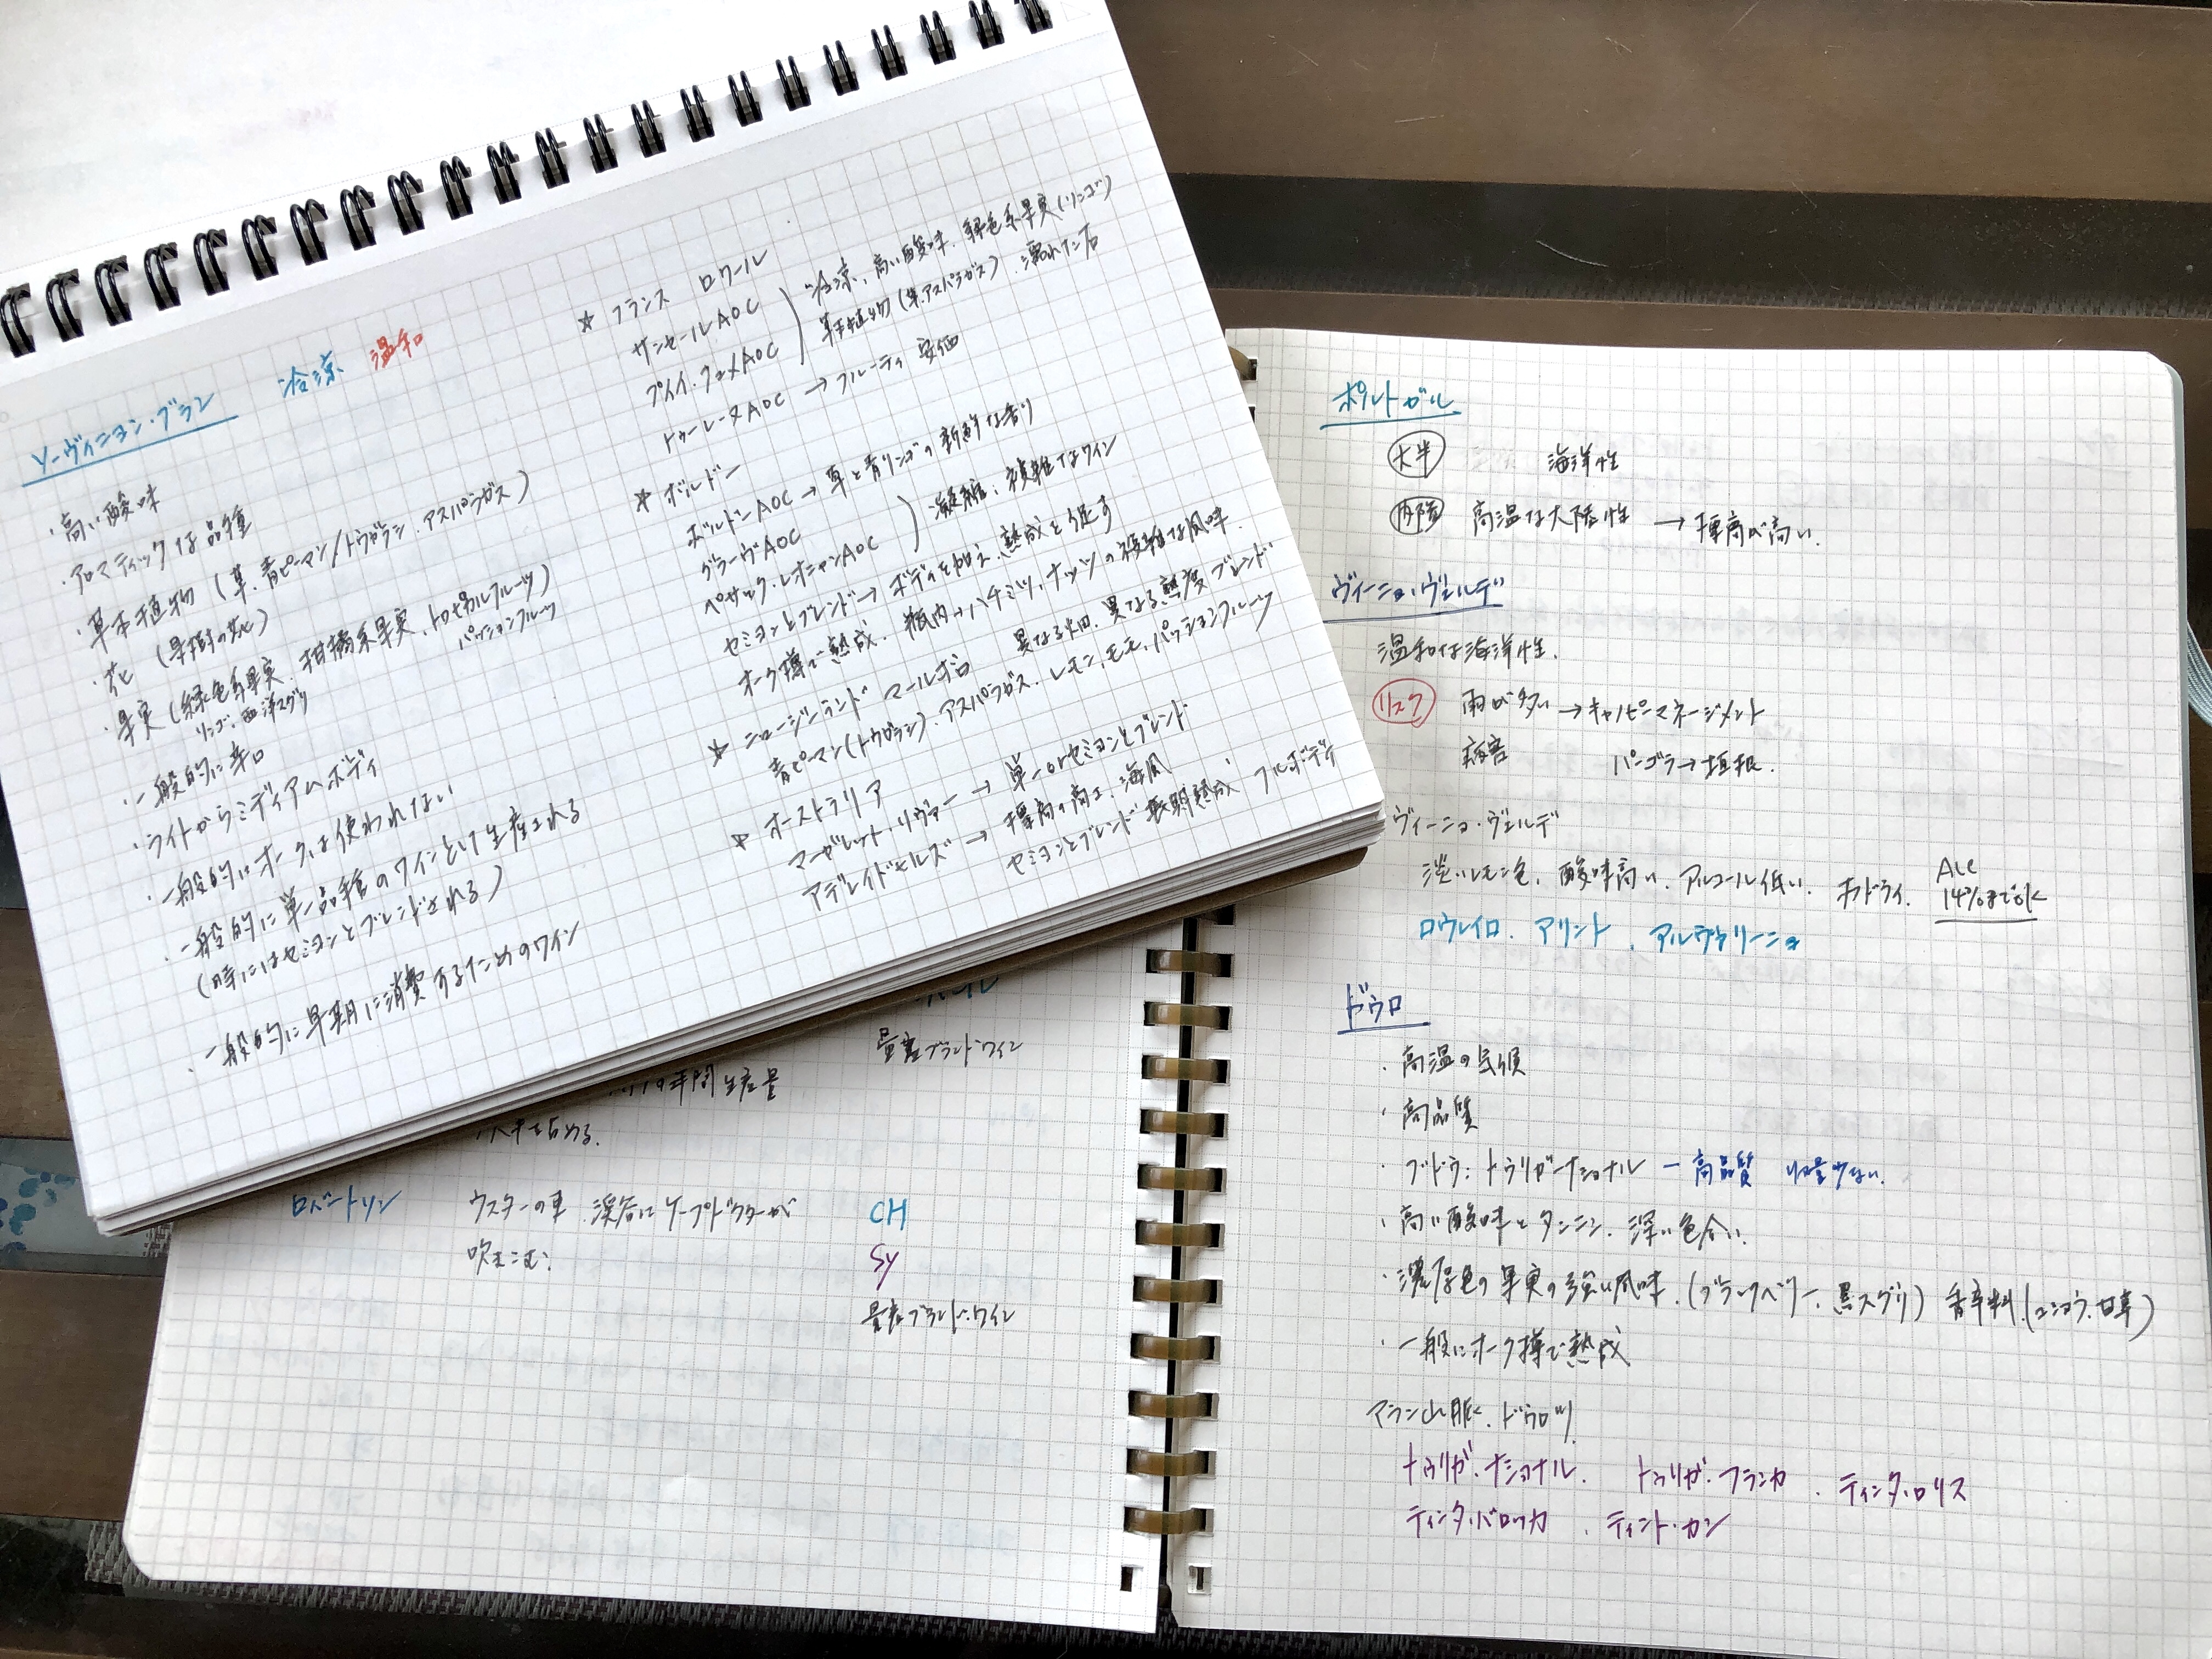 ソーヴィニヨン・ブラン 冷涼 温和
・高い酸味
・アロマティックな品種
・草本植物(草、青ピーマン/トウガラシ、アスパラガス)
・花(果樹の花)
・果実(緑色系果実、柑橘系果実、トロピカルフルーツ)
リンゴ、西洋スグリ パッションフルーツ
・一般的に辛口
・ライトからミディアムボディ
・一般的にオークは使われない
・一般的に単一品種のワインとして生産される
(時にはセミヨンとブレンドされる)
・一般的に早期に消費するためのワイン
☆ フランス ロワール
サンセールAOC
プイィ・フュメAOC
冷涼、高い酸味、緑色系果実(リンゴ)
草本植物(草、アスパラガス)、濡れた石
トゥーレーヌAOC → フルーティ 安価
☆ ボルドー
ボルドーAOC → 草と青リンゴの新鮮な香り
グラーヴAOC
ペサック・レオニャンAOC
凝縮、複雑なワイン
セミヨンとブレンド → ボディを加え、熟成を促す
オーク樽で熟成、瓶内→ハチミツ、ナッツの複雑な風味、
☆ ニュージーランド マールボロ 異なる畑、異なる熟度ブレンド
青ピーマン(トウガラシ)、アスパラガス、レモン、モモ、パッションフルーツ
☆ オーストラリア
マーガレット・リヴァー → 単一orセミヨンとブレンド
アデレイドヒルズ → 標高の高さ、海風
セミヨンとブレンド 長期熟成 フルボディ
量産ブランドワイン
の年間生産量
大半を占める。
ロバートソン ウスターの東、渓谷にケープドクターが CH
吹きこむ。 Sy
量産ブランド・ワイン
ポルトガル
大半 海洋性
内陸 高温な大陸性 → 標高が高い。
ヴィーニョ・ヴェルデ
温和な海洋性。
リスク 雨が多い → キャノピーマネージメント
病害 パーゴラ → 垣根。
ヴィーニョ・ヴェルデ
淡いレモン色、酸味高い、アルコール低い、オフドライ。 Alc
14%までok
ロウレイロ、アリント、アルヴァリーニョ
ドウロ
・高温の気候
・高品質
・ブドウ:トゥリガナショナル ー 高品質 収量少ない。
・高い酸味とタンニン、深い色合い。
・濃厚色の果実の強い風味。(ブラックベリー、黒スグリ) 香辛料。(コショウ、甘草)
・一般にオーク樽で熟成
マラン山脈、ドウロ
トゥリガ・ナショナル、 トゥリガ・フランカ 、ティンタ・ロリス
ティンタ・バロッカ 、ティント・カン